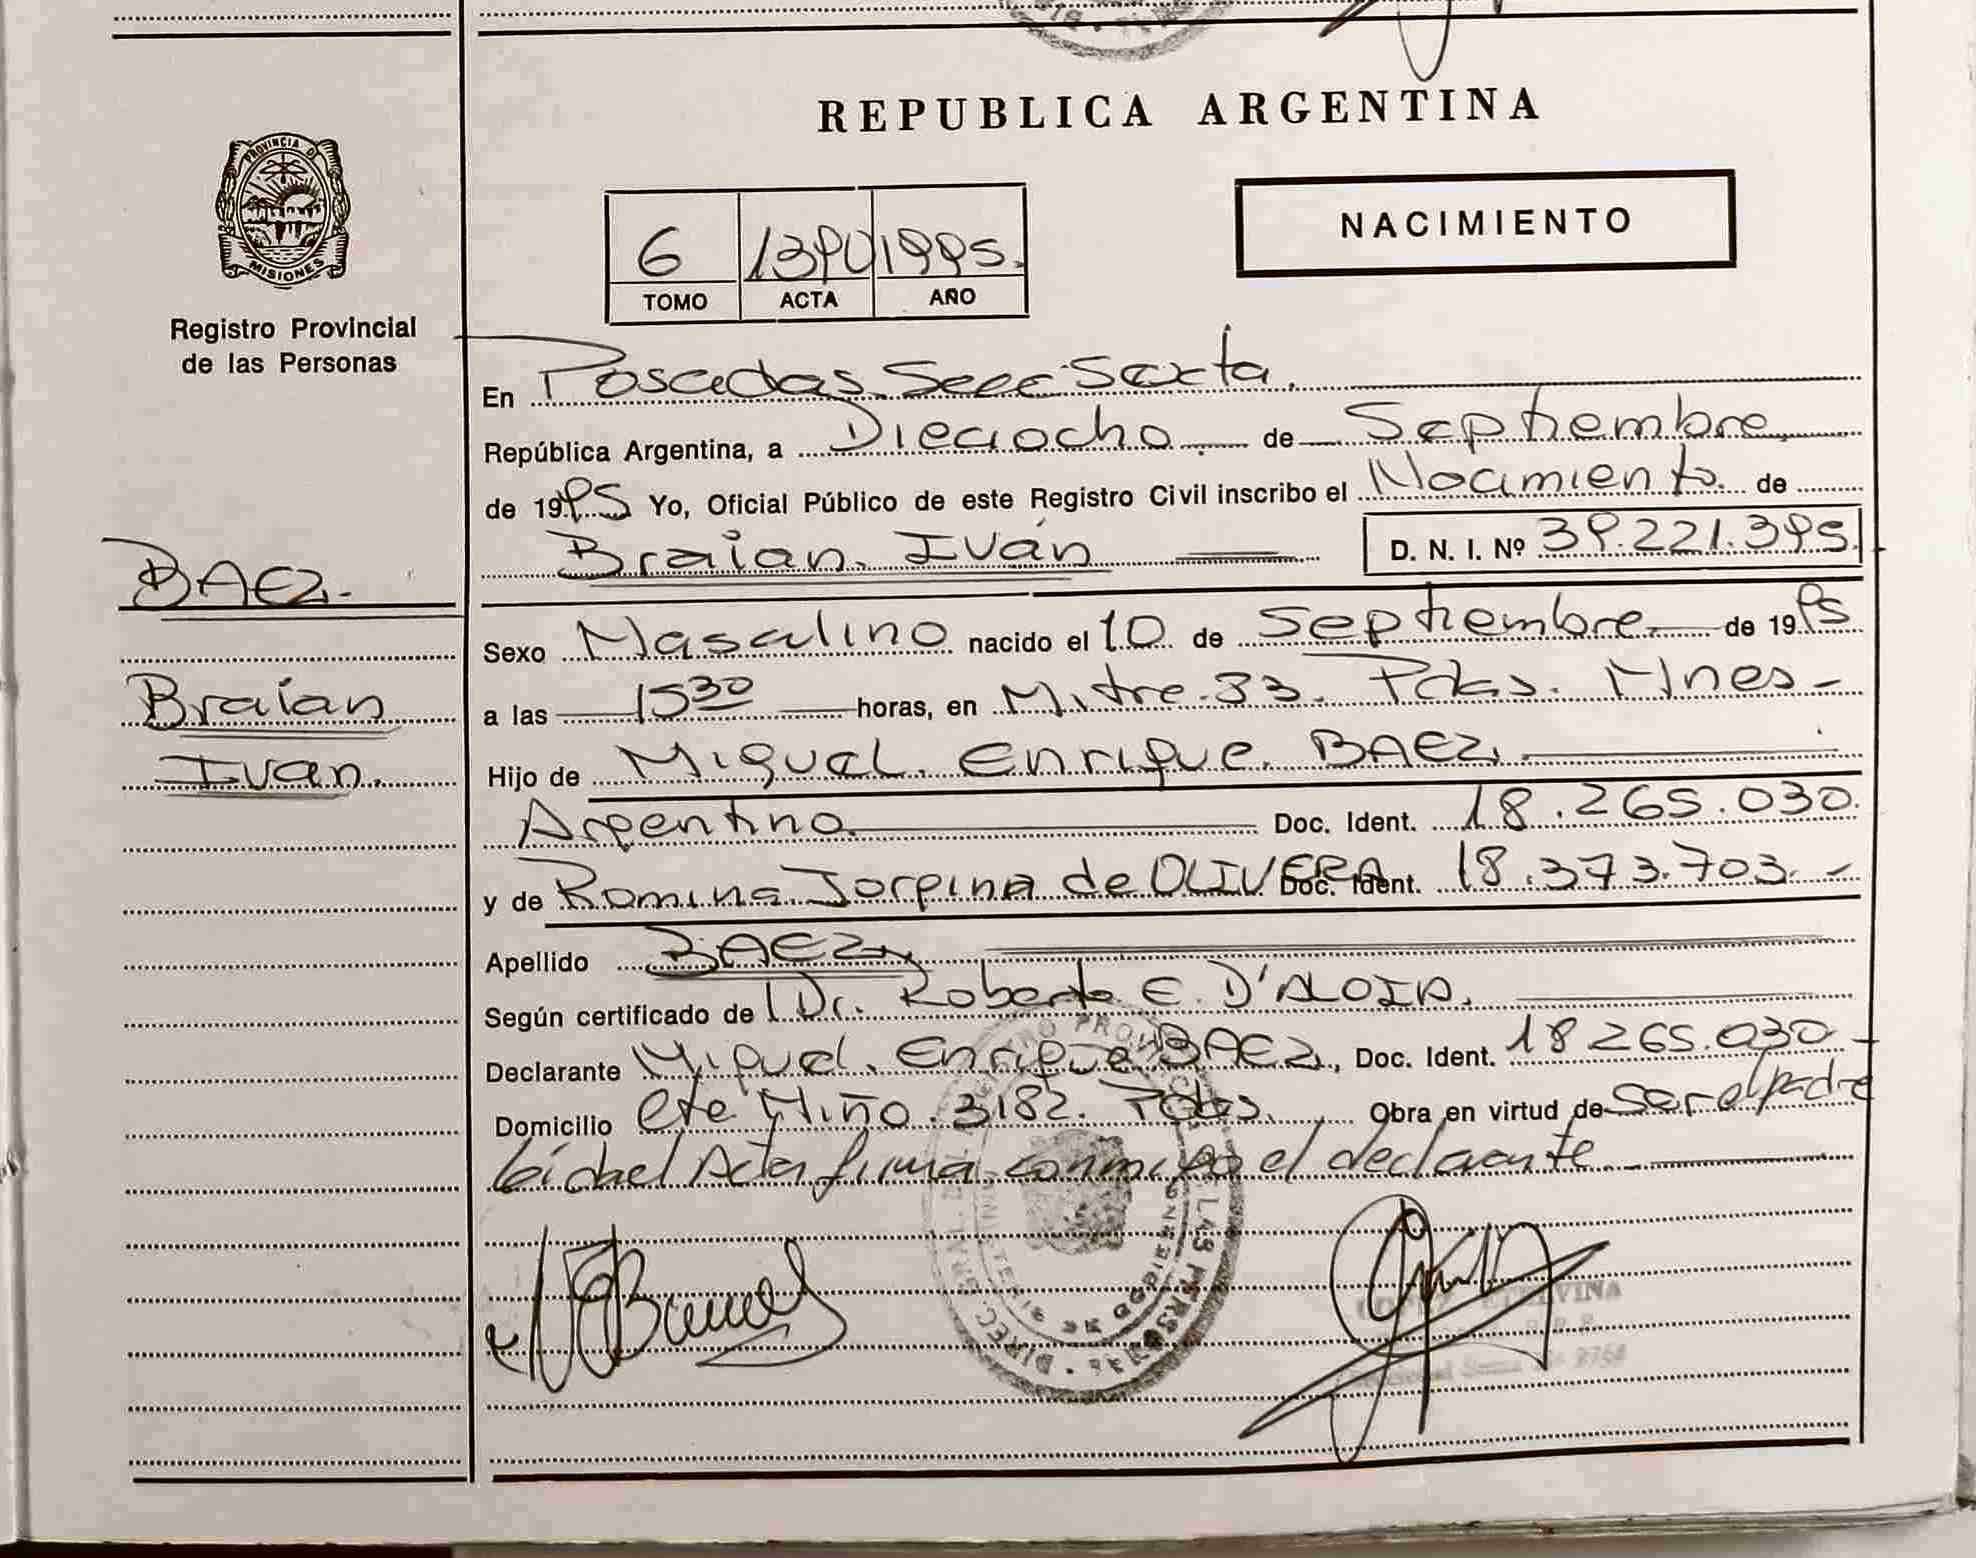 REPUBLICA ARGENTINA
PROVINCIA DE MISIONES
Registro Provincial
de las Personas
NACIMIENTO
6 1995.
TOMO ACTA AÑO
En Posadas Secc Sexta.
República Argentina, a Dieciocho de Septiembre
de 1995 Yo, Oficial Público de este Registro Civil inscribo el Nacimiento de
Braian Iván D. N. I. Nº 39.221.395
BAEZ
Braian
Ivan.
Sexo Masculino nacido el 10 de Septiembre de 1995
a las 15 30 horas, en Mitre 33. Pdas. Mnes
Hijo de Miguel Enrique BAEZ
Argentino Doc. Ident. 18.265.030.
y de Romina Jorgina de OLIVERA Doc. Ident. 18.373.703.
Apellido BAEZ
Según certificado de Dr. Roberto E. D'ALOIA.
Declarante Miguel Enrique BAEZ, Doc. Ident. 18265.030
Domicilio Miño 3182. Pdas. Obra en virtud de ser el padre
leida el Acta firma conmigo el declarante